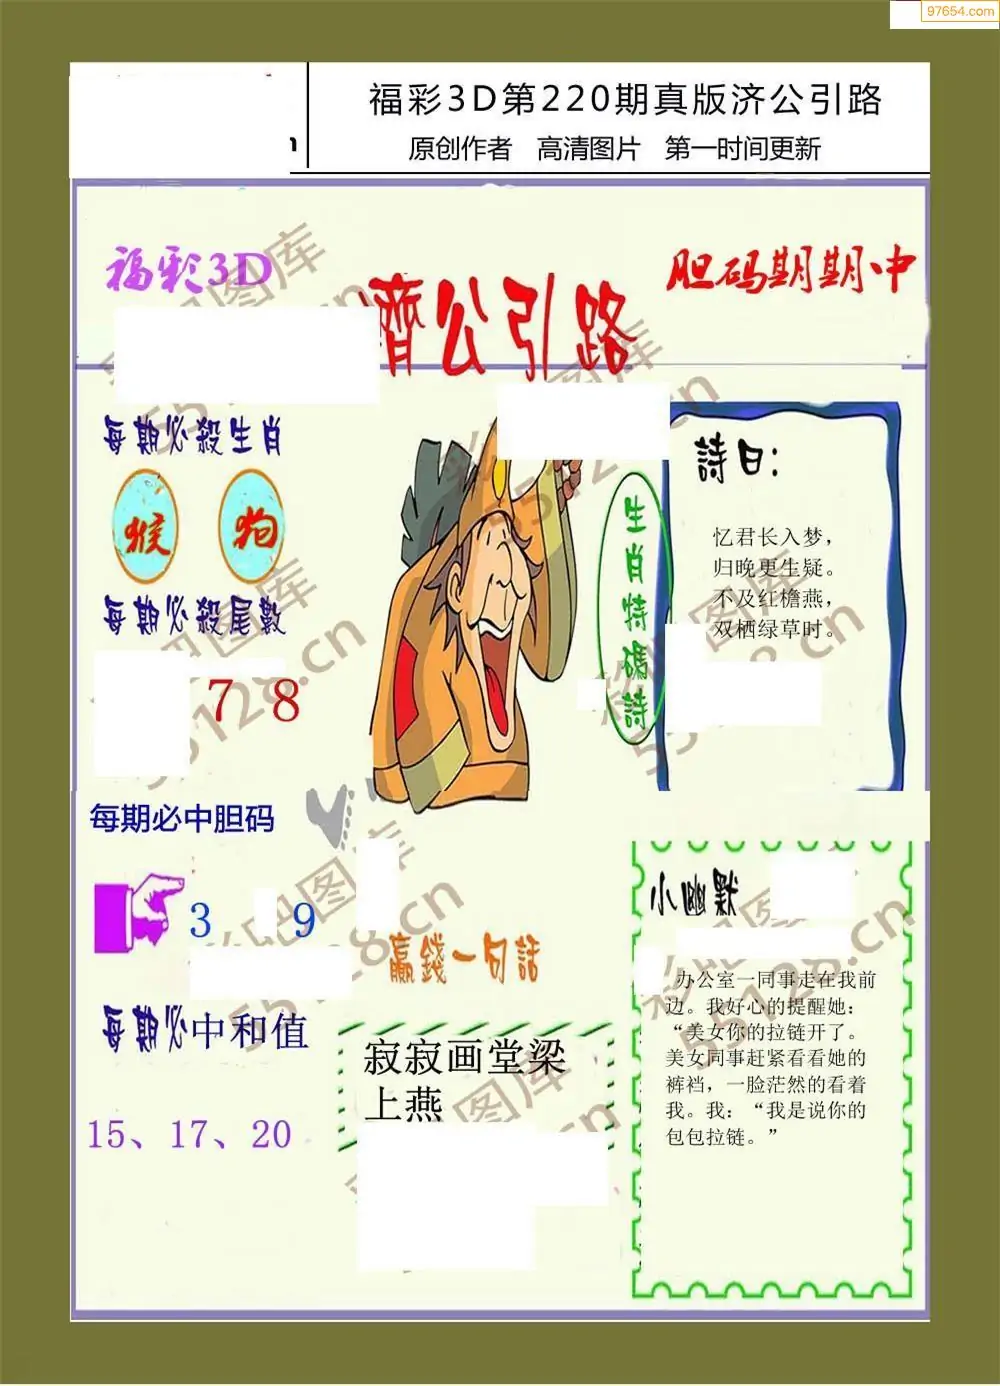 97654.com
福彩3D第220期真版济公引路
原创作者 高清图片 第一时间更新
福彩3D
濟公引路
胆码期期中
每期必殺生肖
猴 狗
每期必殺尾數
7 8
每期必中胆码
3 9
每期必中和值
15、17、20
生肖特碼詩
詩曰:
忆君长入梦，
归晚更生疑。
不及红檐燕，
双栖绿草时。
赢錢一句話
寂寂画堂梁
上燕
小幽默
办公室一同事走在我前
边。我好心的提醒她：
“美女你的拉链开了。
美女同事赶紧看看她的
裤裆，一脸茫然的看着
我。我：“我是说你的
包包拉链。”
彩吧图库
55128.cn